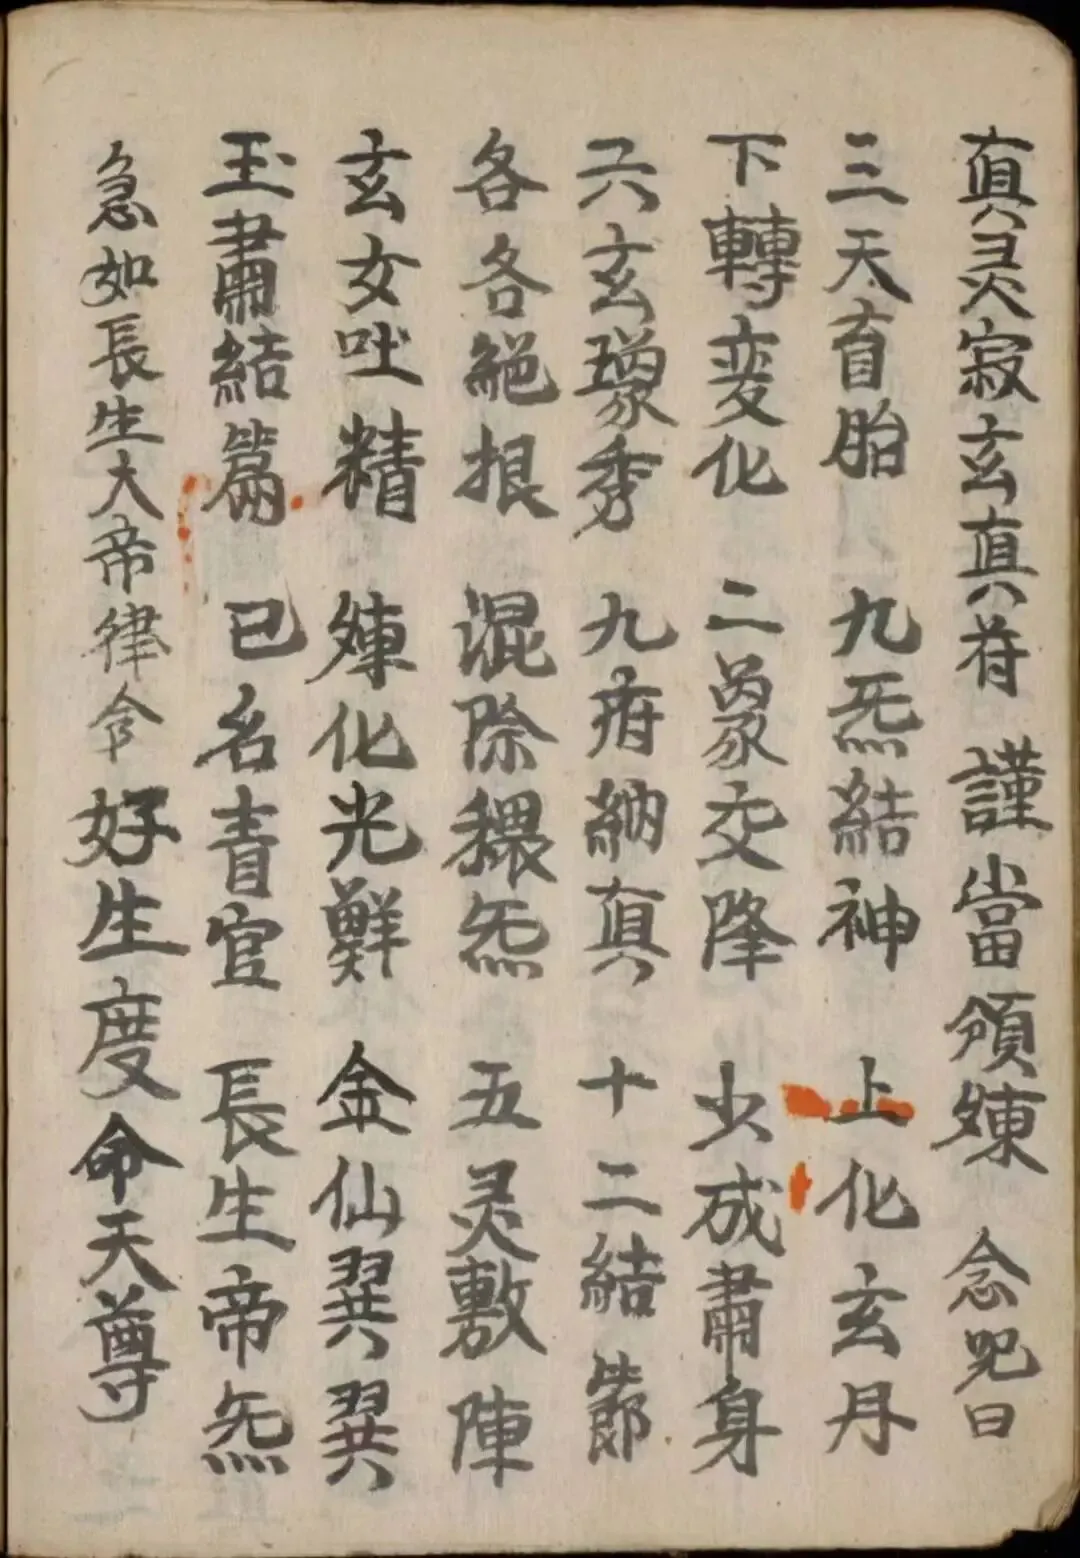 真灵寂玄真符 謹當領煉 念咒曰
三天育胎 九炁結神 上化玄丹
下轉变化 二象交降 以成肅身
六玄瓈秀 九府納真 十二結節
各各絕根 混除穢炁 五灵敷陣
玄女吐精 煉化光鮮 金仙翼翼
玉肅結篇 已名青官 長生帝炁
急如長生大帝律令 好生度命天尊